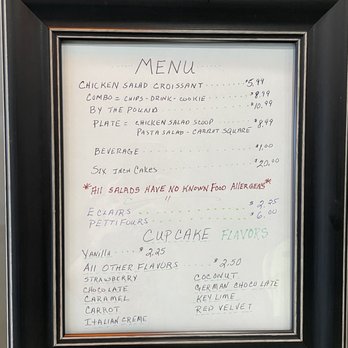 MENU
CHICKEN SALAD CROISSANT ....... $5.99
COMBO = CHIPS - DRINK - COOKIE ....... $8.99
BY THE POUND ....... $10.99
PLATE = CHICKEN SALAD SCOOP ..... $8.99
PASTA SALAD - CARROT SQUARE
BEVERAGE ....... $1.00
SIX INCH CAKES ....... $20.00
*All SALADS HAVE NO KNOWN FOOD AllERGENS*
!!
ECLAIRS ....... $2.25
PETTIFOURS ....... $6.00
CUPCAKE FLAVORS
Vanilla ..... $2.25
All OTHER FLAVORS ....... $2.50
STRAWBERRY COCONUT
CHOCOLATE GERMAN CHOCOLATE
CARAMEL KEY LIME
CARROT RED VELVET
ITALIAN CREME